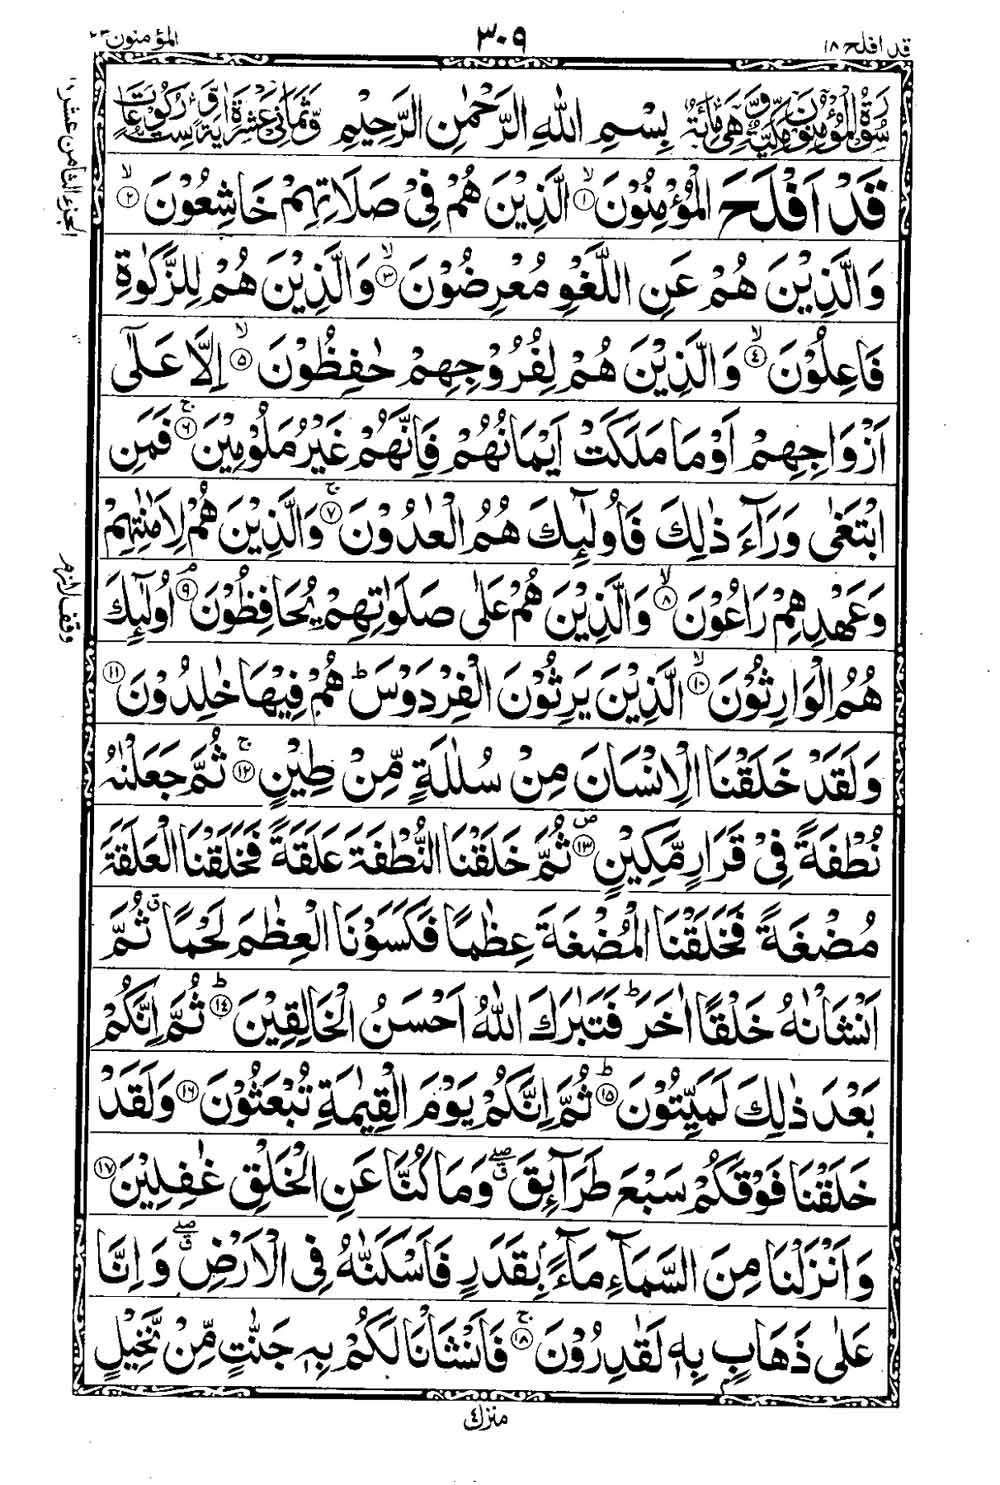 قد افلح ١٨
٣٠٩
المؤمنون ٢٣
سُوْرَةُ الْمُؤْمِنُوْنَ مَكِّيَّةٌ وَّهِيَ مِائَةٌ بِسْمِ اللهِ الرَّحْمٰنِ الرَّحِيْمِ وَّثَمَانِيْ عَشْرَةَ اٰيَةً وَّسِتُّ رُكُوْعَاتٍ
قَدْ اَفْلَحَ الْمُؤْمِنُوْنَ ۙ﴿١﴾ الَّذِيْنَ هُمْ فِيْ صَلَاتِهِمْ خَاشِعُوْنَ ۙ﴿٢﴾
وَالَّذِيْنَ هُمْ عَنِ اللَّغْوِ مُعْرِضُوْنَ ۙ﴿٣﴾ وَالَّذِيْنَ هُمْ لِلزَّكٰوةِ
فَاعِلُوْنَ ۙ﴿٤﴾ وَالَّذِيْنَ هُمْ لِفُرُوْجِهِمْ حٰفِظُوْنَ ۙ﴿٥﴾ اِلَّا عَلٰٓى
اَزْوَاجِهِمْ اَوْ مَا مَلَكَتْ اَيْمَانُهُمْ فَاِنَّهُمْ غَيْرُ مَلُوْمِيْنَ ۚ﴿٦﴾ فَمَنِ
ابْتَغٰى وَرَآءَ ذٰلِكَ فَاُولٰٓئِكَ هُمُ الْعٰدُوْنَ ۚ﴿٧﴾ وَالَّذِيْنَ هُمْ لِاَمٰنٰتِهِمْ
وَعَهْدِهِمْ رَاعُوْنَ ۙ﴿٨﴾ وَالَّذِيْنَ هُمْ عَلٰى صَلَوٰتِهِمْ يُحَافِظُوْنَ ۘ﴿٩﴾ اُولٰٓئِكَ
هُمُ الْوَارِثُوْنَ ۙ﴿١٠﴾ الَّذِيْنَ يَرِثُوْنَ الْفِرْدَوْسَ ؕ هُمْ فِيْهَا خٰلِدُوْنَ ﴿١١﴾
وَلَقَدْ خَلَقْنَا الْاِنْسَانَ مِنْ سُلٰلَةٍ مِّنْ طِيْنٍ ۚ﴿١٢﴾ ثُمَّ جَعَلْنٰهُ
نُطْفَةً فِيْ قَرَارٍ مَّكِيْنٍ ﴿١٣﴾ ص ثُمَّ خَلَقْنَا النُّطْفَةَ عَلَقَةً فَخَلَقْنَا الْعَلَقَةَ
مُضْغَةً فَخَلَقْنَا الْمُضْغَةَ عِظٰمًا فَكَسَوْنَا الْعِظٰمَ لَحْمًا ق ثُمَّ
اَنْشَاْنٰهُ خَلْقًا اٰخَرَ ؕ فَتَبٰرَكَ اللهُ اَحْسَنُ الْخَالِقِيْنَ ؕ﴿١٤﴾ ثُمَّ اِنَّكُمْ
بَعْدَ ذٰلِكَ لَمَيِّتُوْنَ ؕ﴿١٥﴾ ثُمَّ اِنَّكُمْ يَوْمَ الْقِيٰمَةِ تُبْعَثُوْنَ ﴿١٦﴾ وَلَقَدْ
خَلَقْنَا فَوْقَكُمْ سَبْعَ طَرَآئِقَ ۖق وَمَا كُنَّا عَنِ الْخَلْقِ غٰفِلِيْنَ ﴿١٧﴾
وَاَنْزَلْنَا مِنَ السَّمَآءِ مَآءًۢ بِقَدَرٍ فَاَسْكَنّٰهُ فِي الْاَرْضِ ۖق وَاِنَّا
عَلٰى ذَهَابٍۭ بِهٖ لَقٰدِرُوْنَ ۚ﴿١٨﴾ فَاَنْشَاْنَا لَكُمْ بِهٖ جَنّٰتٍ مِّنْ نَّخِيْلٍ
منزل ٤
الجزء الثامن عشر ١٨
وقف لازم